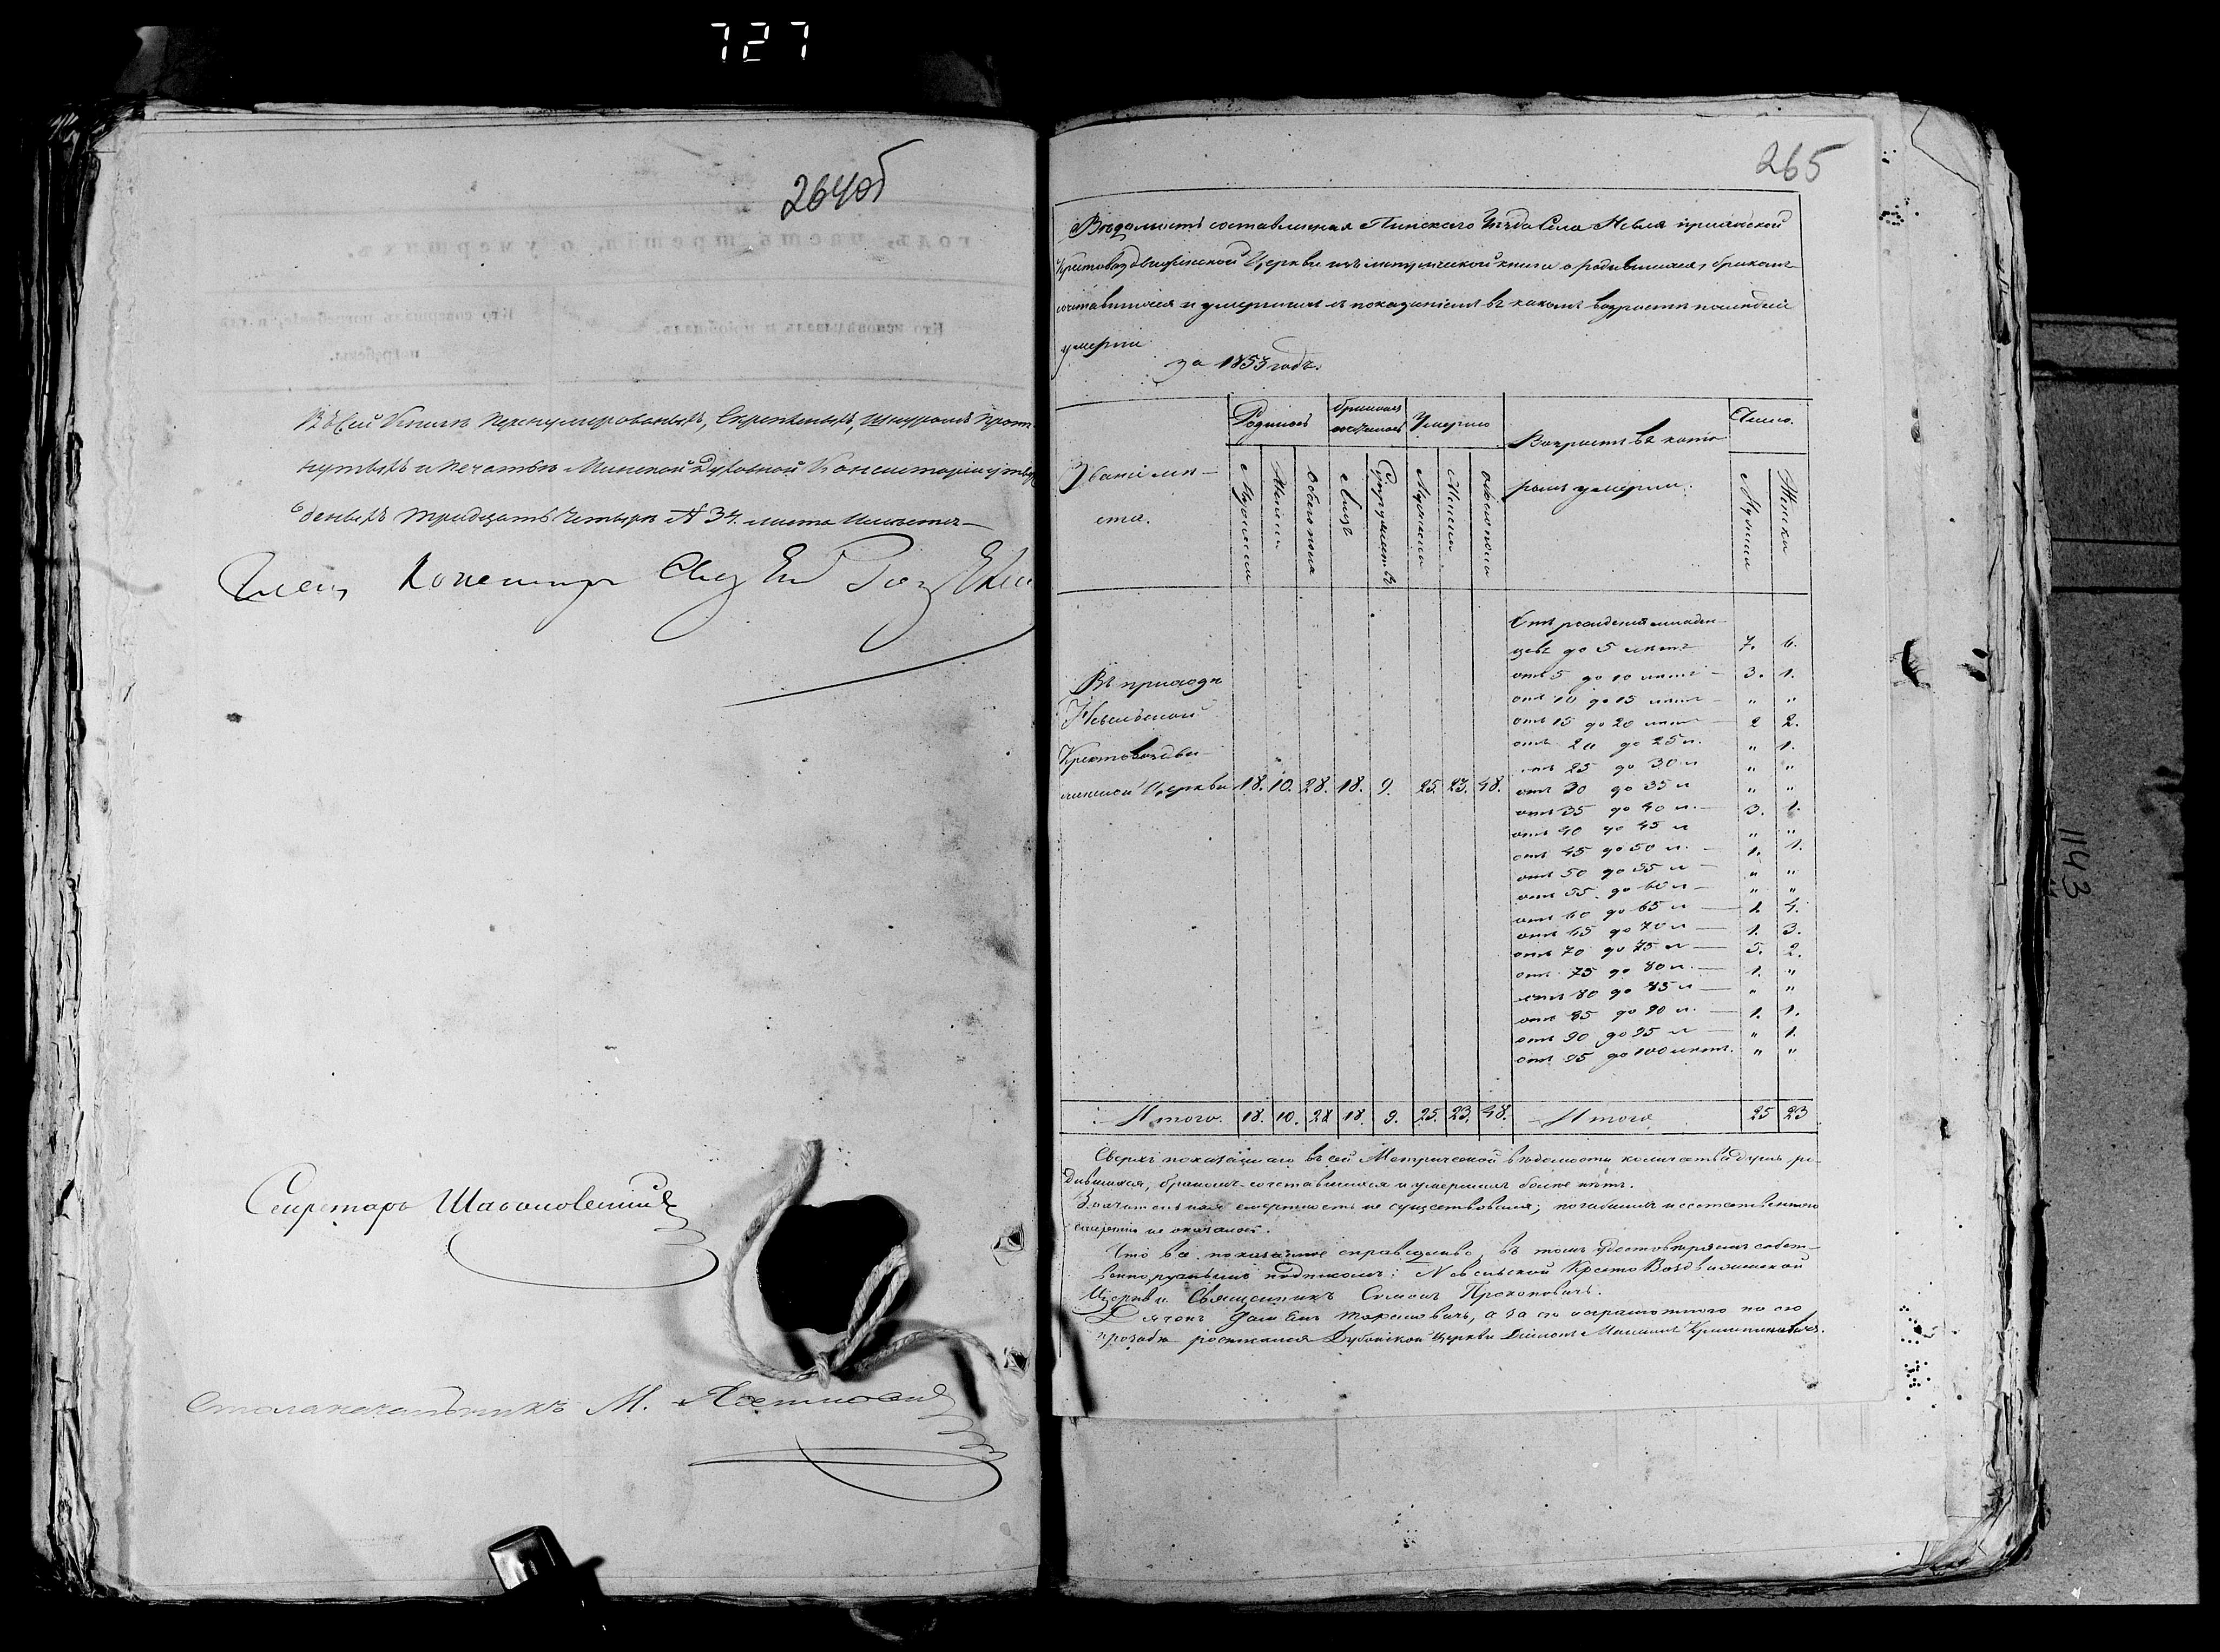 727
264об
годъ, часть третія, о умершихъ.
Кто исповѣдывалъ и пріобщалъ.
Кто совершалъ погребеніе, и гдѣ
погребены.
Въ сей Книгѣ перенумерованныхъ, скрѣпленныхъ, шнуромъ протя-
нутыхъ и печатью Минской Духовной Консисторіи утвер
жденныхъ тридцать четыре № 34. листа
Членъ
Секретарь
Столоначальникъ М.
265
Вѣдомость составленная Пинскаго Уѣзда Села Невля приходской
Крестовоздвиженской Церкви изъ метрической книги о родившихся, бракомъ
сочетавшихся и умершихъ съ показаніемъ въ какомъ возрастѣ послѣдніе
умерли
за 1853 годъ.
Званіе мѣ-
ста.
Родилось
бракомъ
Умерло
Возрастъ въ кото
ромъ умерли.
Число.
Мужеска
Женска
Обоего пола
Лицъ
Супружествъ
Мужеска
Женска
Обоего пола
Мужеска
Женска
Отъ рожденія младен-
цевъ до 5 лѣтъ 7. 6.
отъ 5 до 10 лѣтъ – 3. 1.
отъ 10 до 15 лѣтъ – " "
отъ 15 до 20 лѣтъ – 2 2.
отъ 20 до 25 л. " 1.
отъ 25 до 30 л " "
отъ 30 до 35 л " "
отъ 35 до 40 л. – 3. 1.
отъ 40 до 45 л " "
отъ 45 до 50 л. – 1. 1.
отъ 50 до 55 л – " "
отъ 55 до 60 л – " "
отъ 60 до 65 л – 1. 4.
отъ 65 до 70 л – 1. 3.
отъ 70 до 75 л – 5. 2.
отъ 75 до 80 л. – 1. "
отъ 80 до 85 л – " "
отъ 85 до 90 л. – 1. 1.
отъ 90 до 95 л – " 1.
отъ 95 до 100 лѣтъ. " "
Въ приходѣ
Невельской
Крестовоздви-
женской Церкви 18. 10. 28. 18. 9. 25. 23. 48.
Итого. 18. 10. 28 18. 9. 25. 23. 48. Итого 25 23
Сверхъ показаннаго въ сей Метрической вѣдомости количества душъ ро-
дившихся, бракомъ сочетавшихся и умершихъ болѣе нѣтъ.
Значительная смертность не существовала; погибшихъ неестественною
смертію не оказалось.
Что все показанное справедливо, въ томъ удостовѣряемъ собст-
венноручнымъ подписомъ: Невельской Кресто Воздвиженской
Церкви Священникъ Симонъ Прокоповичъ.
Дьячокъ, а за его неграмотнаго по его
прозьбѣ росписался Дубойской Церкви Дьячокъ
1143